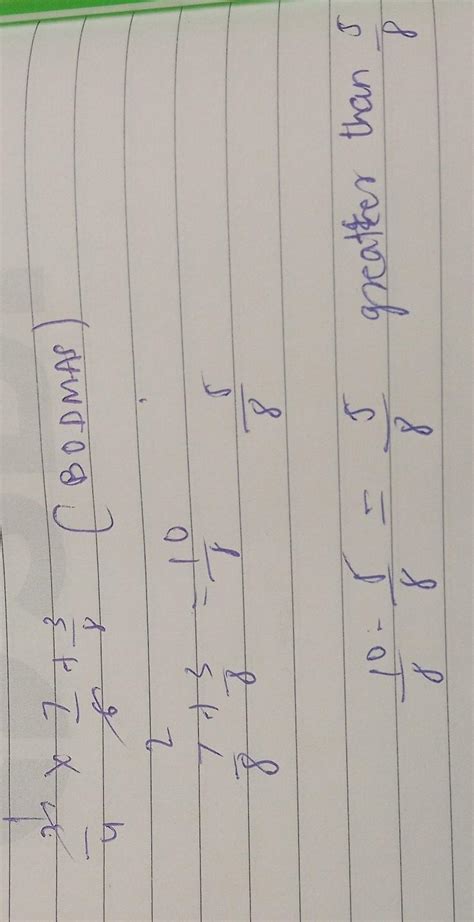 1
3/4 × 7/6 + 3/8 (BODMAS)
2
7/8 + 3/8 = 10/8 5/8
10/8 - 5/8 = 5/8 greatter than 5/8